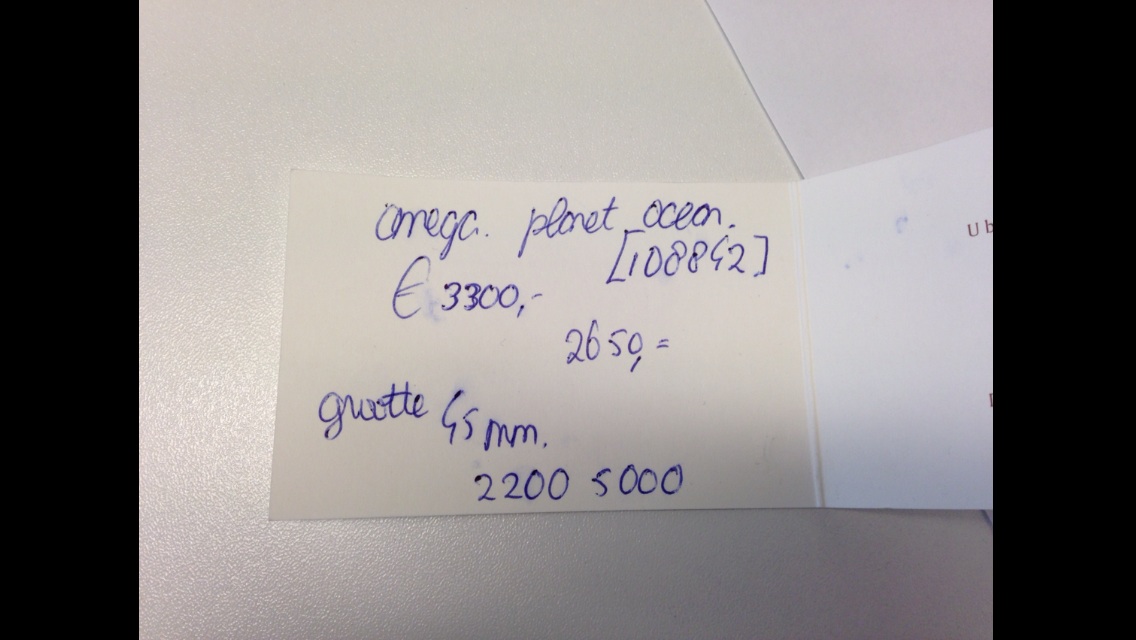 omega. planet ocean.
[108842]
€ 3300,-
2650,=
grootte 45 mm.
2200 5000
Ub